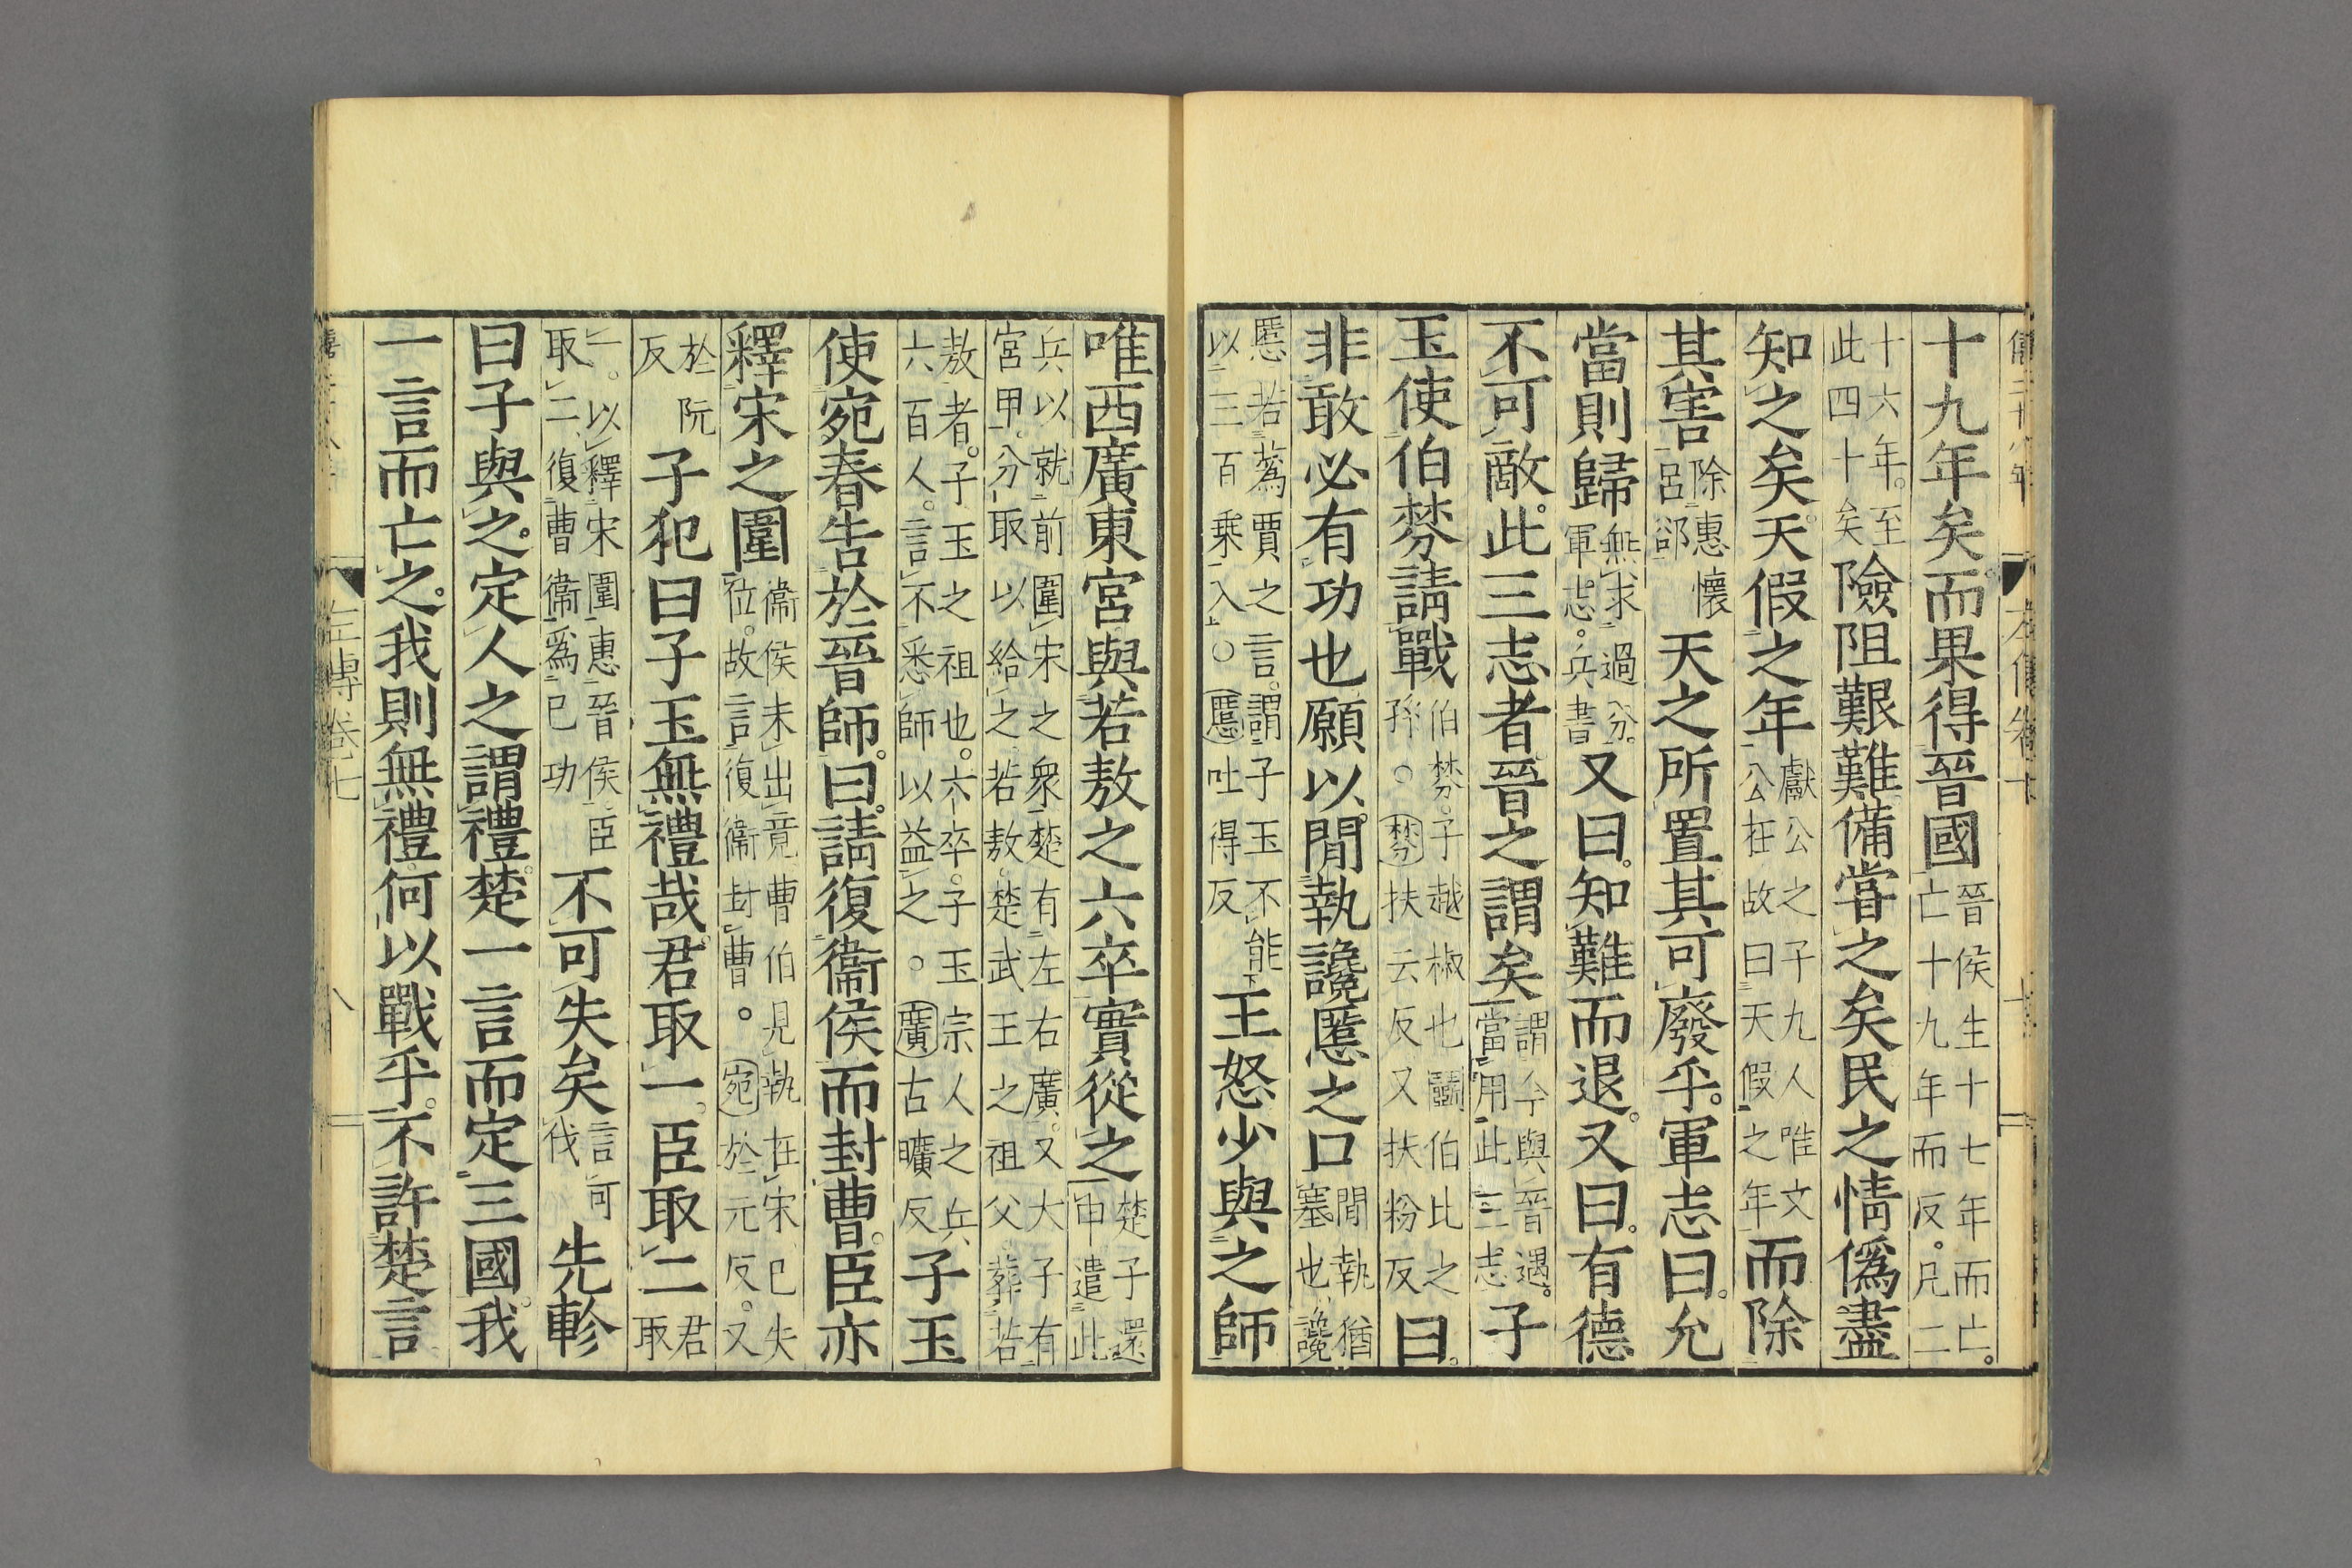 十九年矣而果得晉國晉侯生十七年而亡。亡十九年而反。凡二
十六年。至此四十矣險阻艱難備嘗之矣民之情僞盡
知之矣天假之年獻公之子九人唯文公在故曰天假之年而除
其害除惠懷呂郤天之所置其可廢乎。軍志曰。允
當則歸無求過分。軍志。兵書又曰。知難而退。又曰。有德
不可敵。此三志者晉之謂矣謂今與晉遇。當用此三志子
玉使伯棼請戰伯棼。子越椒也鬭伯比之孫。○棼扶云反又扶粉反曰。
非敢必有功也願以閒執讒慝之口閒執猶塞也讒
慝若蔿賈之言。謂子玉不能以三百乘入。○慝吐得反王怒少與之師
唯西廣東宮與若敖之六卒實從之楚子還申遣此
兵以就前圍宋之衆楚有左右廣。又大子有宮甲。分取以給之若敖。楚武王之祖父。葬若
敖者。子玉之祖也。六卒。子玉宗人之兵六百人。言不悉師以益之。○廣古曠反子玉
使宛春告於晉師。曰。請復衞侯而封曹。臣亦
釋宋之圍衞侯未出竟曹伯見執在宋已失位。故言復衞封曹。○宛於元反。又
於阮反子犯曰子玉無禮哉。君取一。臣取二君取
一。以釋宋圍惠晉侯。臣取二復曹衞爲已功不可失矣言可伐先軫
曰子與之。定人之謂禮。楚一言而定三國。我
一言而亡之。我則無禮。何以戰乎。不許楚言
左傳卷七
八